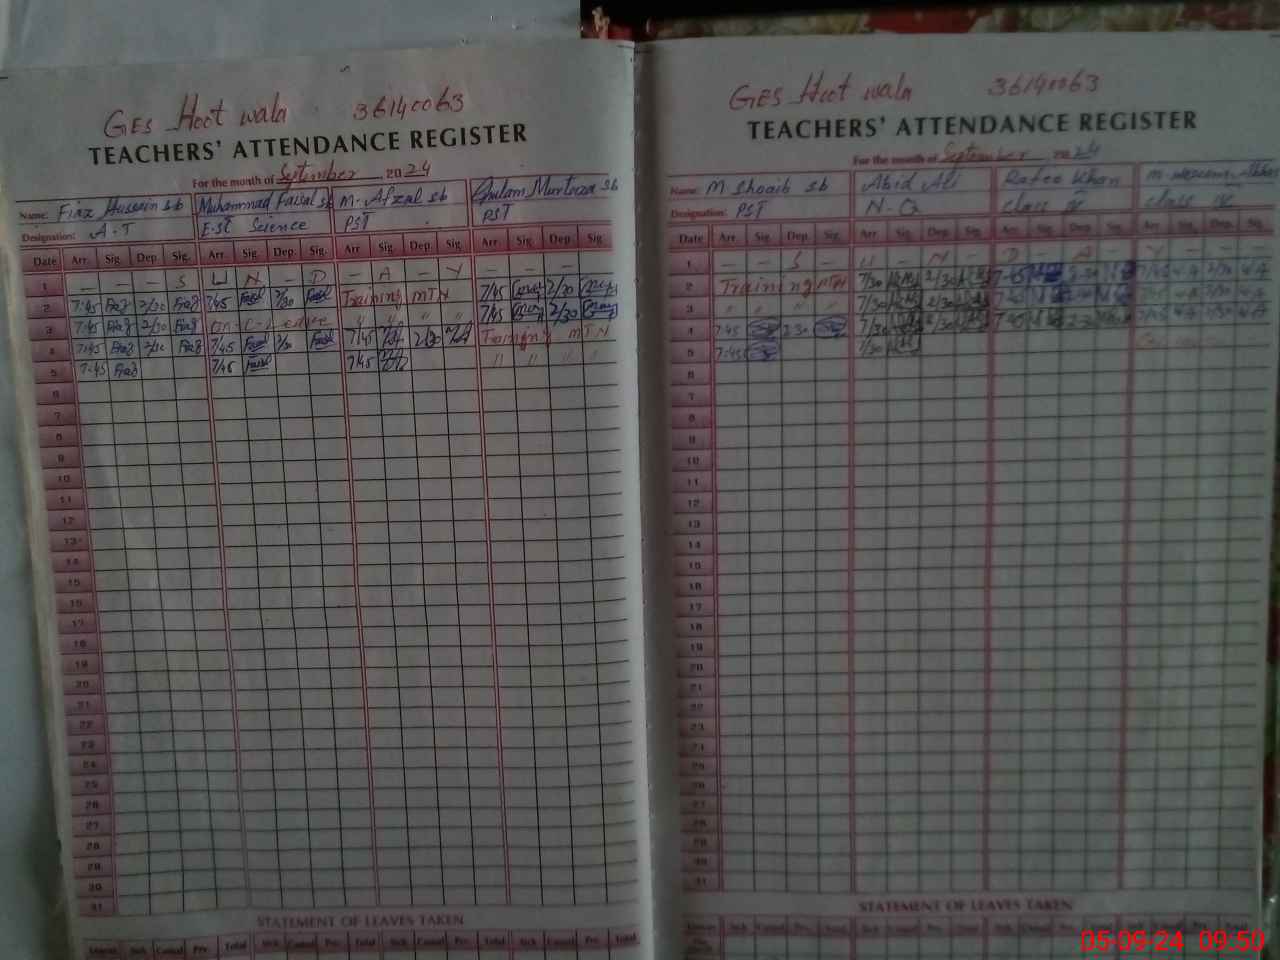 GES Hoot wala 36140063
TEACHERS' ATTENDANCE REGISTER
For the month of September 2024
Name: Fiaz Hussain sb Muhammad Faisal sb M. Afzal sb Ghulam Murtaza sb
Designation: A.T E.st Science PST PST
Date Arr. Sig. Dep. Sig. Arr. Sig. Dep. Sig. Arr. Sig. Dep. Sig. Arr. Sig. Dep. Sig.
1 — — — S U N — D — A — Y — — — —
2 7:45 Fiaz 2/30 Fiaz 7/45 Faisal 2/30 Faisal Training MTN 7/45 2/30
3 7:45 Fiaz 2/30 Fiaz on C-Leave " " " " 7/45 2/30
4 7:45 Fiaz 2/30 Fiaz 7/45 Faisal 2/30 Faisal 7/45 2/30 Training MTN
5 7:45 Fiaz 7/45 Faisal 7/45 " " " "
6
7
8
9
10
11
12
13
14
15
16
17
18
19
20
21
22
23
24
25
26
27
28
29
30
31
STATEMENT OF LEAVES TAKEN
Leaves Sick Casual Prv. Total Sick Casual Prv. Total Sick Casual Prv. Total Sick Casual Prv. Total
GES Hoot wala 36140063
TEACHERS' ATTENDANCE REGISTER
For the month of September 2024
Name: M Shoaib sb Abid Ali Rafeo Khan
Designation: PST N-Q class IV class IV
Date Arr. Sig. Dep. Sig. Arr. Sig. Dep. Sig. Arr. Sig. Dep. Sig. Arr. Sig. Dep. Sig.
1 — — S — U — N — D — A — Y — — —
2 Training MTN 7/30 2/30 7:45 2:30 7/45 2/30
3 " " " " 7/30 2/30
4 7:45 2:30 7/30 2/30 7:45 2:30
5 7:45 7/30
6
7
8
9
10
11
12
13
14
15
16
17
18
19
20
21
22
23
24
25
26
27
28
29
30
31
STATEMENT OF LEAVES TAKEN
Leaves Sick Casual Prv. Total Sick Casual Prv. Total
05-09-24 09:50